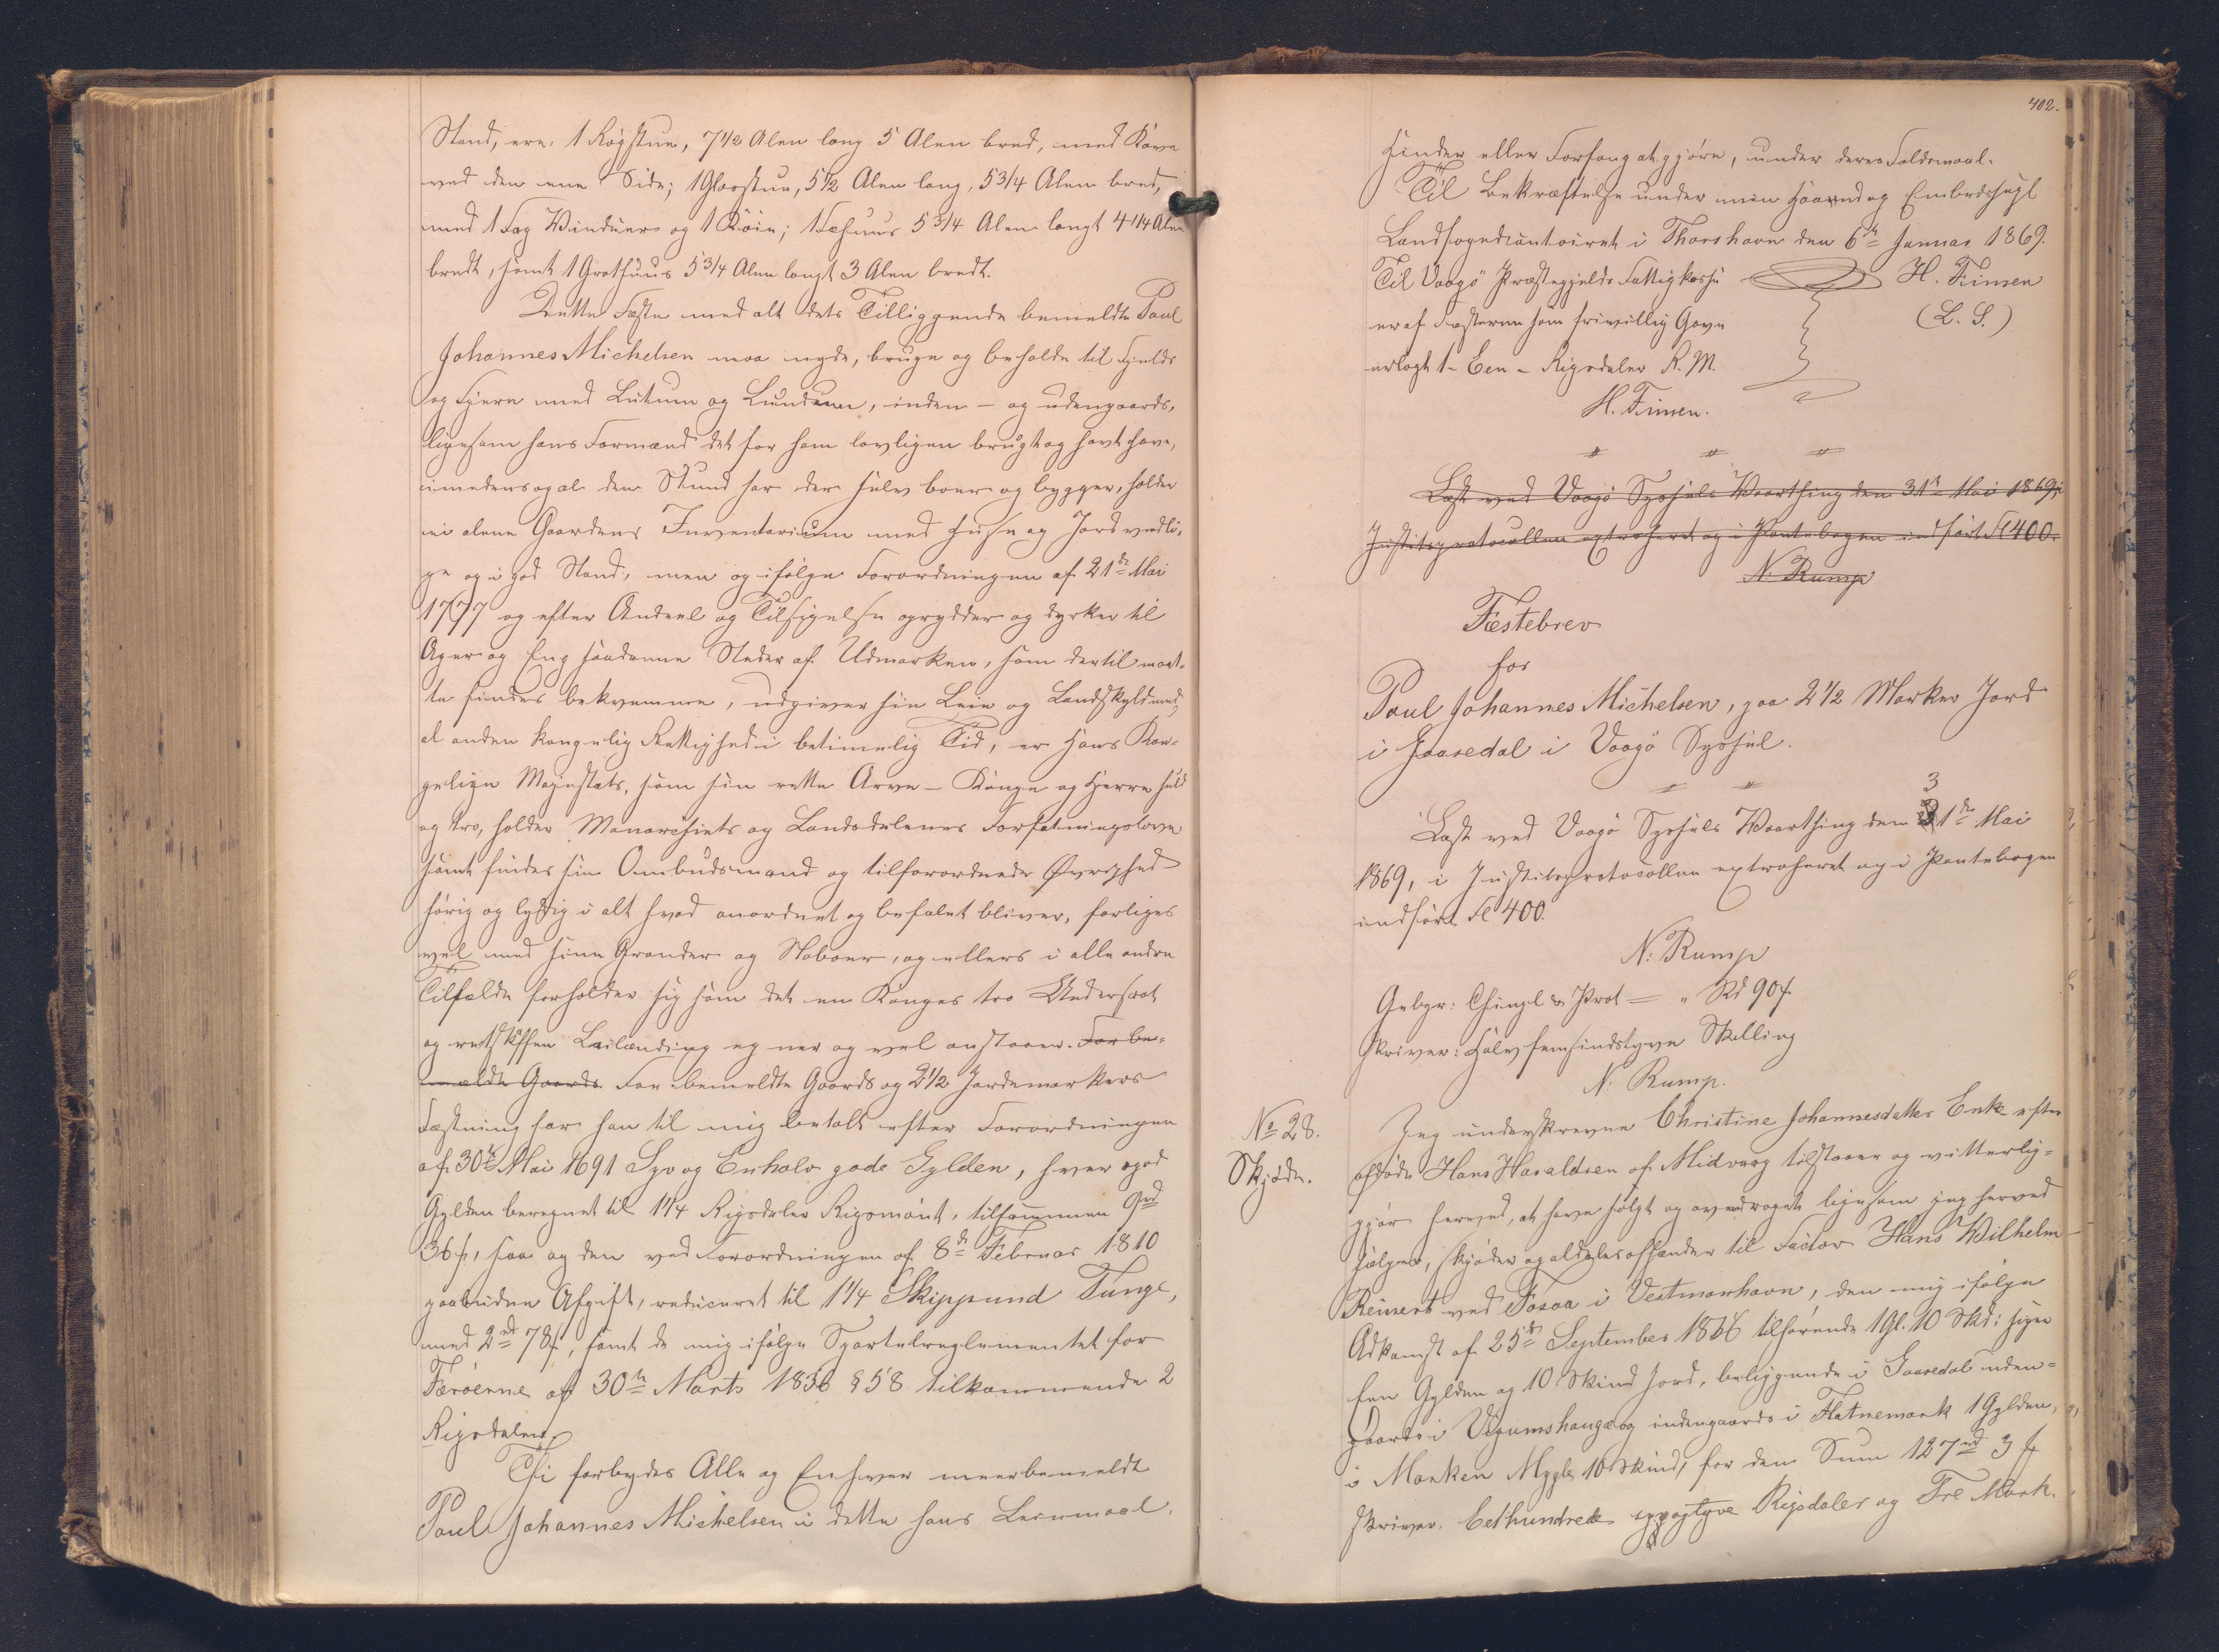 Stand, ere: 1 Røgstue, 7 1/2 Alen lang 5 Alen bred, med Køve
ved den ene Side; 1 Glasstue, 5 1/2 Alen lang, 5 3/4 Alen bred,
med 1 Fag Vinduer og 1 Køie; 1 Fæhuus 5 3/4 Alen langt 4 1/4 Alen
bredt, samt 1 Grothuus 5 3/4 Alen langt 3 Alen bredt.
Dette Fæste med alt dets Tilliggende bemeldte Paul
Johannes Michelsen maa nyde, bruge og beholde til Fjelds
og Fjære med Lutum og Lundum, inden- og udengaards,
ligesom hans Formænd det før ham lovligen brugt og havt have,
imedens og al den Stund han der selv boer og bygger, holder
ei alene Gaardens Inventarium med Huse og Jord vedli-
ge og i god Stand, men og ifølge Forordningen af 21de Mai
1777 og efter Andeel og Tilsigelse oprydder og dyrker til
Ager og Eng saadanne Steder af Udmarken, som dertil maat-
te findes bekvemme, udgiver sin Leie og Landskyld med,
al anden kongelig Rettighed i betimelig Tid, er Hans Kon-
gelige Majestæts, som sin rette Arve-Konge og Herre huld
og tro, holder Monarchiets og Landsdelenes Forfatningslove
samt findes sin Ombudsmand og tilforordnede Øvrighed
hørig og lydig i alt hvad anordnet og befalet bliver, forliges
vel med sine Grander og Naboer, og ellers i alle andre
Tilfælde forholder sig som det en Konges tro Undersaat
og retskaffen Leilænding egner og vel anstaaer. For be-
meldte Gaards For bemeldte Gaards og 2 1/2 Jordemarkers
Fæstning har han til mig betalt efter Forordningen
af 30te Mai 1691 Syv og Enhalv gode Gylden, hver god
Gylden beregnet til 1 1/4 Rigsdaler Rigsmønt, tilsammen 9rd
36 s, saa og den ved Forordningen af 8de Februar 1810
paabudne Afgift, reduceret til 1 1/4 Skippund Tunge,
med 2rd 78 s, samt de mig ifølge Sportelreglementet for
Færöerne af 30te Marts 1836 § 58 tilkommende 2
Rigsdaler.
Thi forbydes Alle og Enhver meerbemeldte
Paul Johannes Michelsen i dette hans Leiemaal.
402.
Hinder eller Forfang at gjøre, under deres Faldsmaal.
Til Bekræftelse under min Haand og Embedssegl
Landfogedcontoiret i Thorshavn den 6te Januar 1869.
Til Vaagö Præstegjelds Fattigkasse H. Finsen
er af Fæsteren som frivillig Gave (L. S.)
erlagt 1 - Een - Rigsdaler R. M.
H. Finsen.
Læst ved Vaagö Syssels Vaarthing den 31te Mai 1869, i
Justitsprotocollen extraheret og i Pantebogen indført Fl 400.
N: Rump
Fæstebrev
for
Paul Johannes Michelsen, paa 2 1/2 Marker Jord
i Gaasedal i Vaagö Syssel.
3
Læst ved Vaagö Syssels Vaarthing den 31te Mai
1869, i Justitsprotocollen extraheret og i Pantebogen
indført Fl 400.
N: Rump
Gebyr: Thingl & Prot = " Rd 90 s
skriver: Halvfemsindstyve Skilling
N: Rump.
No 28.
Skjøde.
Jeg underskrevne Christine Johannesdatter Enke efter
afdøde Hans Haraldsen af Midvaag tilstaaer og vitterlig-
gjør herved, at have solgt og overdraget ligesom jeg herved
sælger, skjøder og aldeles afhænder til Factor Hans Wilhelm
Reinert ved Fosaa i Vestmanhavn, den mig ifølge
Adkomst af 25de September 1856 tilhørende 1 Gl. 10 Skd: siger
Een Gylden og 10 Skind Jord, beliggende i Gaasedal uden-
gaards i Vigumshauge og indengaards i Flatnemark 1 Gylden,
i Marken Mygle 10 Skind, for den Sum 127rd 3 #
skriver. Eethundrede syvogtyve Rigsdaler og Tre Mark.